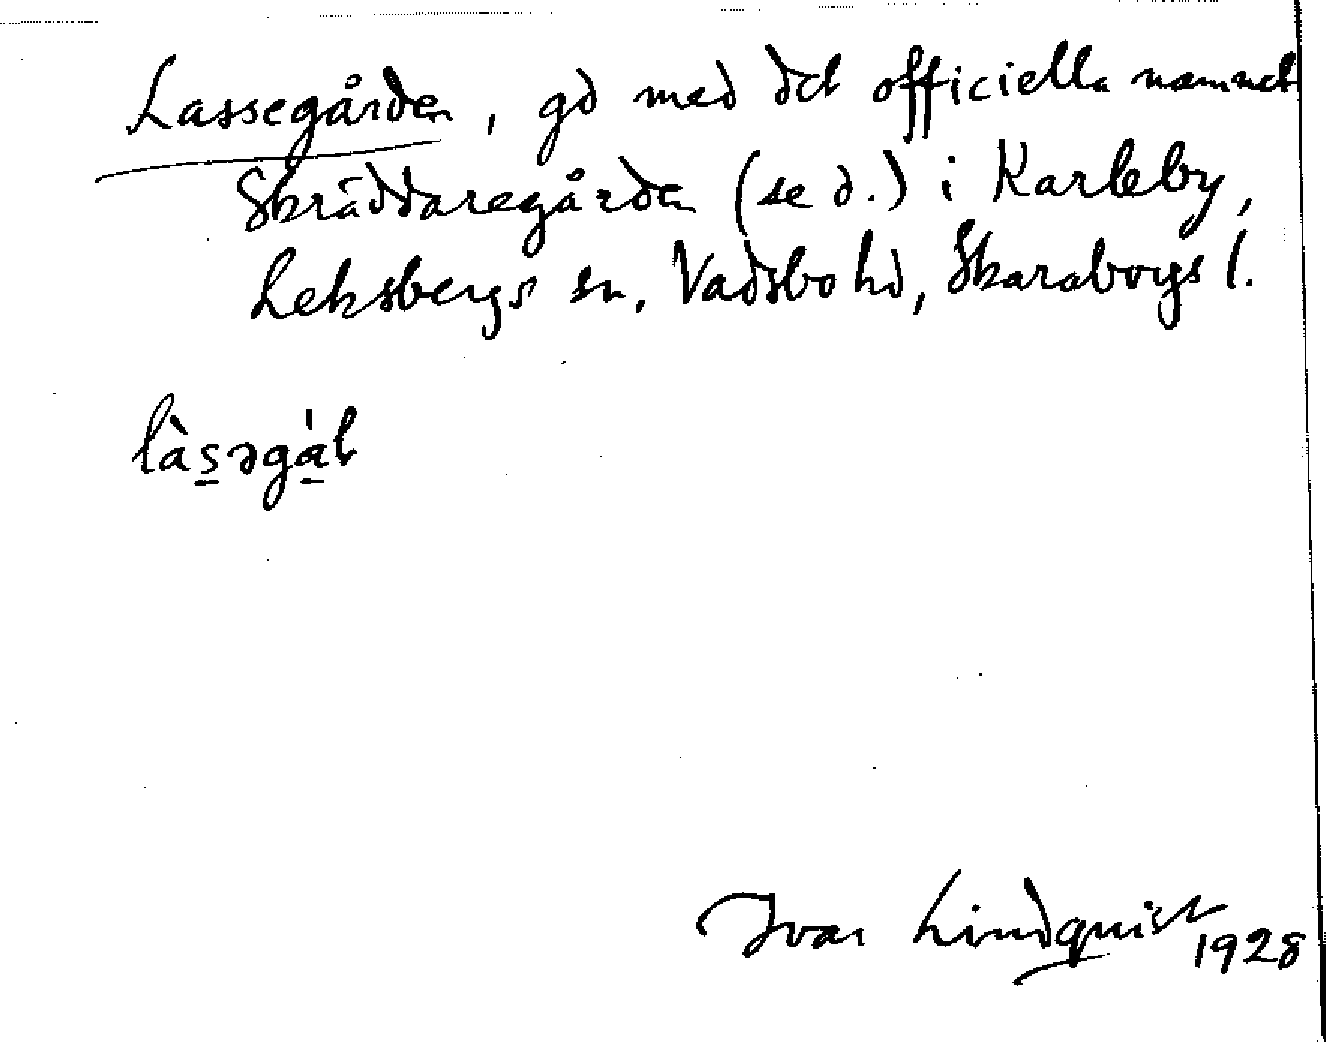 Lassegården, gd med det officiella namnet
Skräddaregården (se d.) i Karleby,
Leksbergs sn, Vadsbo hd, Skaraborgs l.
là̱sə̱gá̱ɫ
Ivar Lindquist
1928